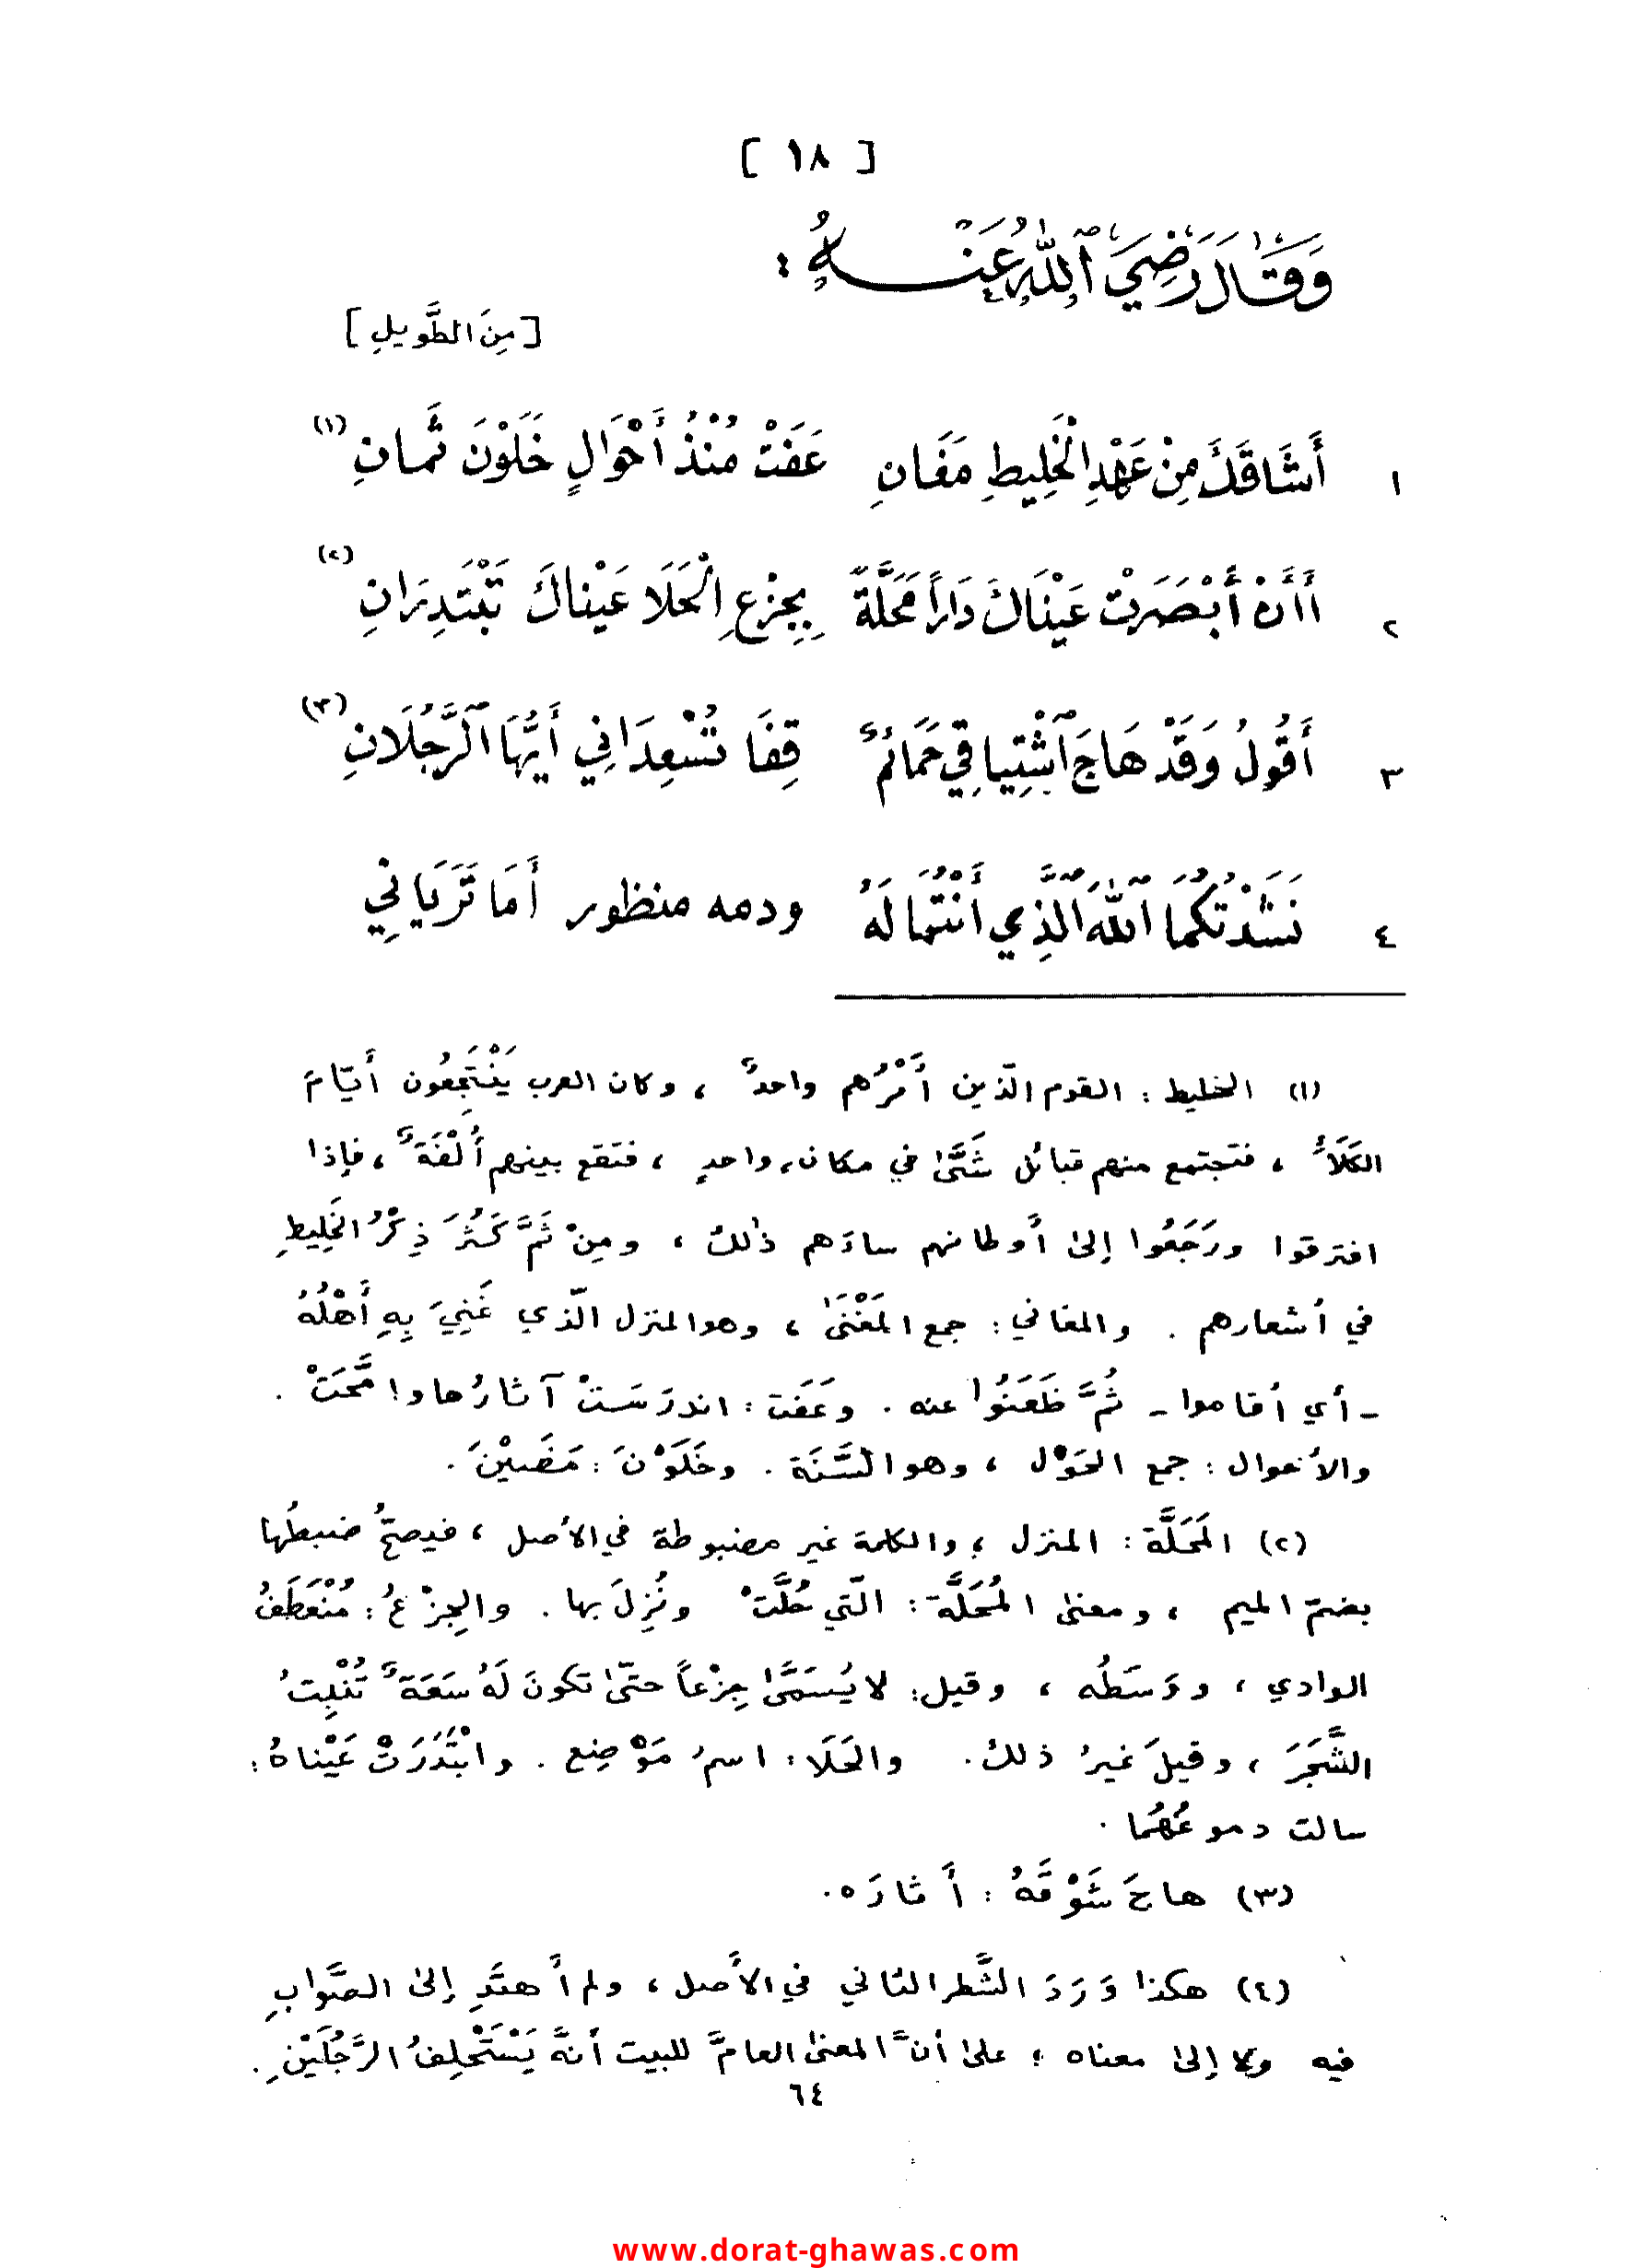 [ ١٨ ]
وَقَالَ رَضِيَ ٱللّٰهُ عَنْهُ :
[ مِنَ الطَّوِيلِ ]
١ أَشَاقَكَ مِنْ عَهْدِ الْخَلِيطِ مَغَانِ عَفَتْ مُنْذُ أَحْوَالٍ خَلَوْنَ ثَمانِ (١)
٢ أَأَنْ أَبْصَرَتْ عَيْنَاكَ دَاراً مَحَلَّةً بِجِزْعِ الْحَلَا عَيْناكَ تَبْتَدِرَانِ (٢)
٣ أَقُولُ وَقَدْ هَاجَ ٱشْتِياقِي حَمَائمٌ قِفَا تُسْعِدَانِي أَيُّهَا ٱلرَّجُلَانِ (٣)
٤ نَشَدْتُكُمَا ٱللّٰهَ الَّذِي أَنْتُما لَهُ ودمه منظور أَمَا تَرَيَانِي
(١) الخليط : القوم الّذين أَمْرُهم واحدٌ ، وكان العرب يَنْتَجِعُون أَيّامَ
الكَلَأِ ، فتجتمع منهم قبائل شَتَّىٰ في مكانٍ واحدٍ ، فتقع بينهم أُلْفَةٌ ، فإذا
افترقوا ورَجَعُوا إلىٰ أوطانهم ساءَهم ذٰلك ، ومِنْ ثَمَّ كَثُرَ ذِكْرُ الخَلِيطِ
في أشعارهم . والمغاني : جمع المَغْنَىٰ ، وهو المنزل الّذي غَنِيَ بِهِ أَهْلُهُ
- أي أقاموا - ثُمَّ ظَعَنُوا عنه . وعَفَت : اندرَسَتْ آثارُها وامَّحَتْ .
والأحوال : جمع الحَوْل ، وهو السَّنَة . وخَلَوْنَ : مَضَيْنَ .
(٢) المَحَلَّة : المنزل ، والكلمة غير مضبوطة في الأصل ، فيصحُّ ضبطُها
بضمّ الميم ، ومعنىٰ المُحَلَّة : الّتي حُلَّتْ ونُزِلَ بها . والجِزْعُ : مُنْعَطَفُ
الوادي ، ووَسَطُه ، وقيل : لا يُسَمَّىٰ جِزْعاً حتّىٰ تكونَ لَهُ سَعَةٌ تُنْبِتُ
الشَّجَرَ ، وقيلَ غيرُ ذلك . والحَلَا : اسمُ مَوْضِع . وابْتُدَرَتْ عَيْناهُ :
سالت دموعُهُما .
(٣) هاجَ شَوْقَهُ : أَثارَه .
(٤) هكذا وَرَدَ الشَّطر الثاني في الأَصل ، ولم أَهتَدِ إلىٰ الصَّوابِ
فيه ولا إلىٰ معناه ؛ علىٰ أنَّ المعنىٰ العامَّ للبيت أنَّهُ يَسْتَحْلِفُ الرَّجُلَيْنِ .
٦٤
www.dorat-ghawas.com